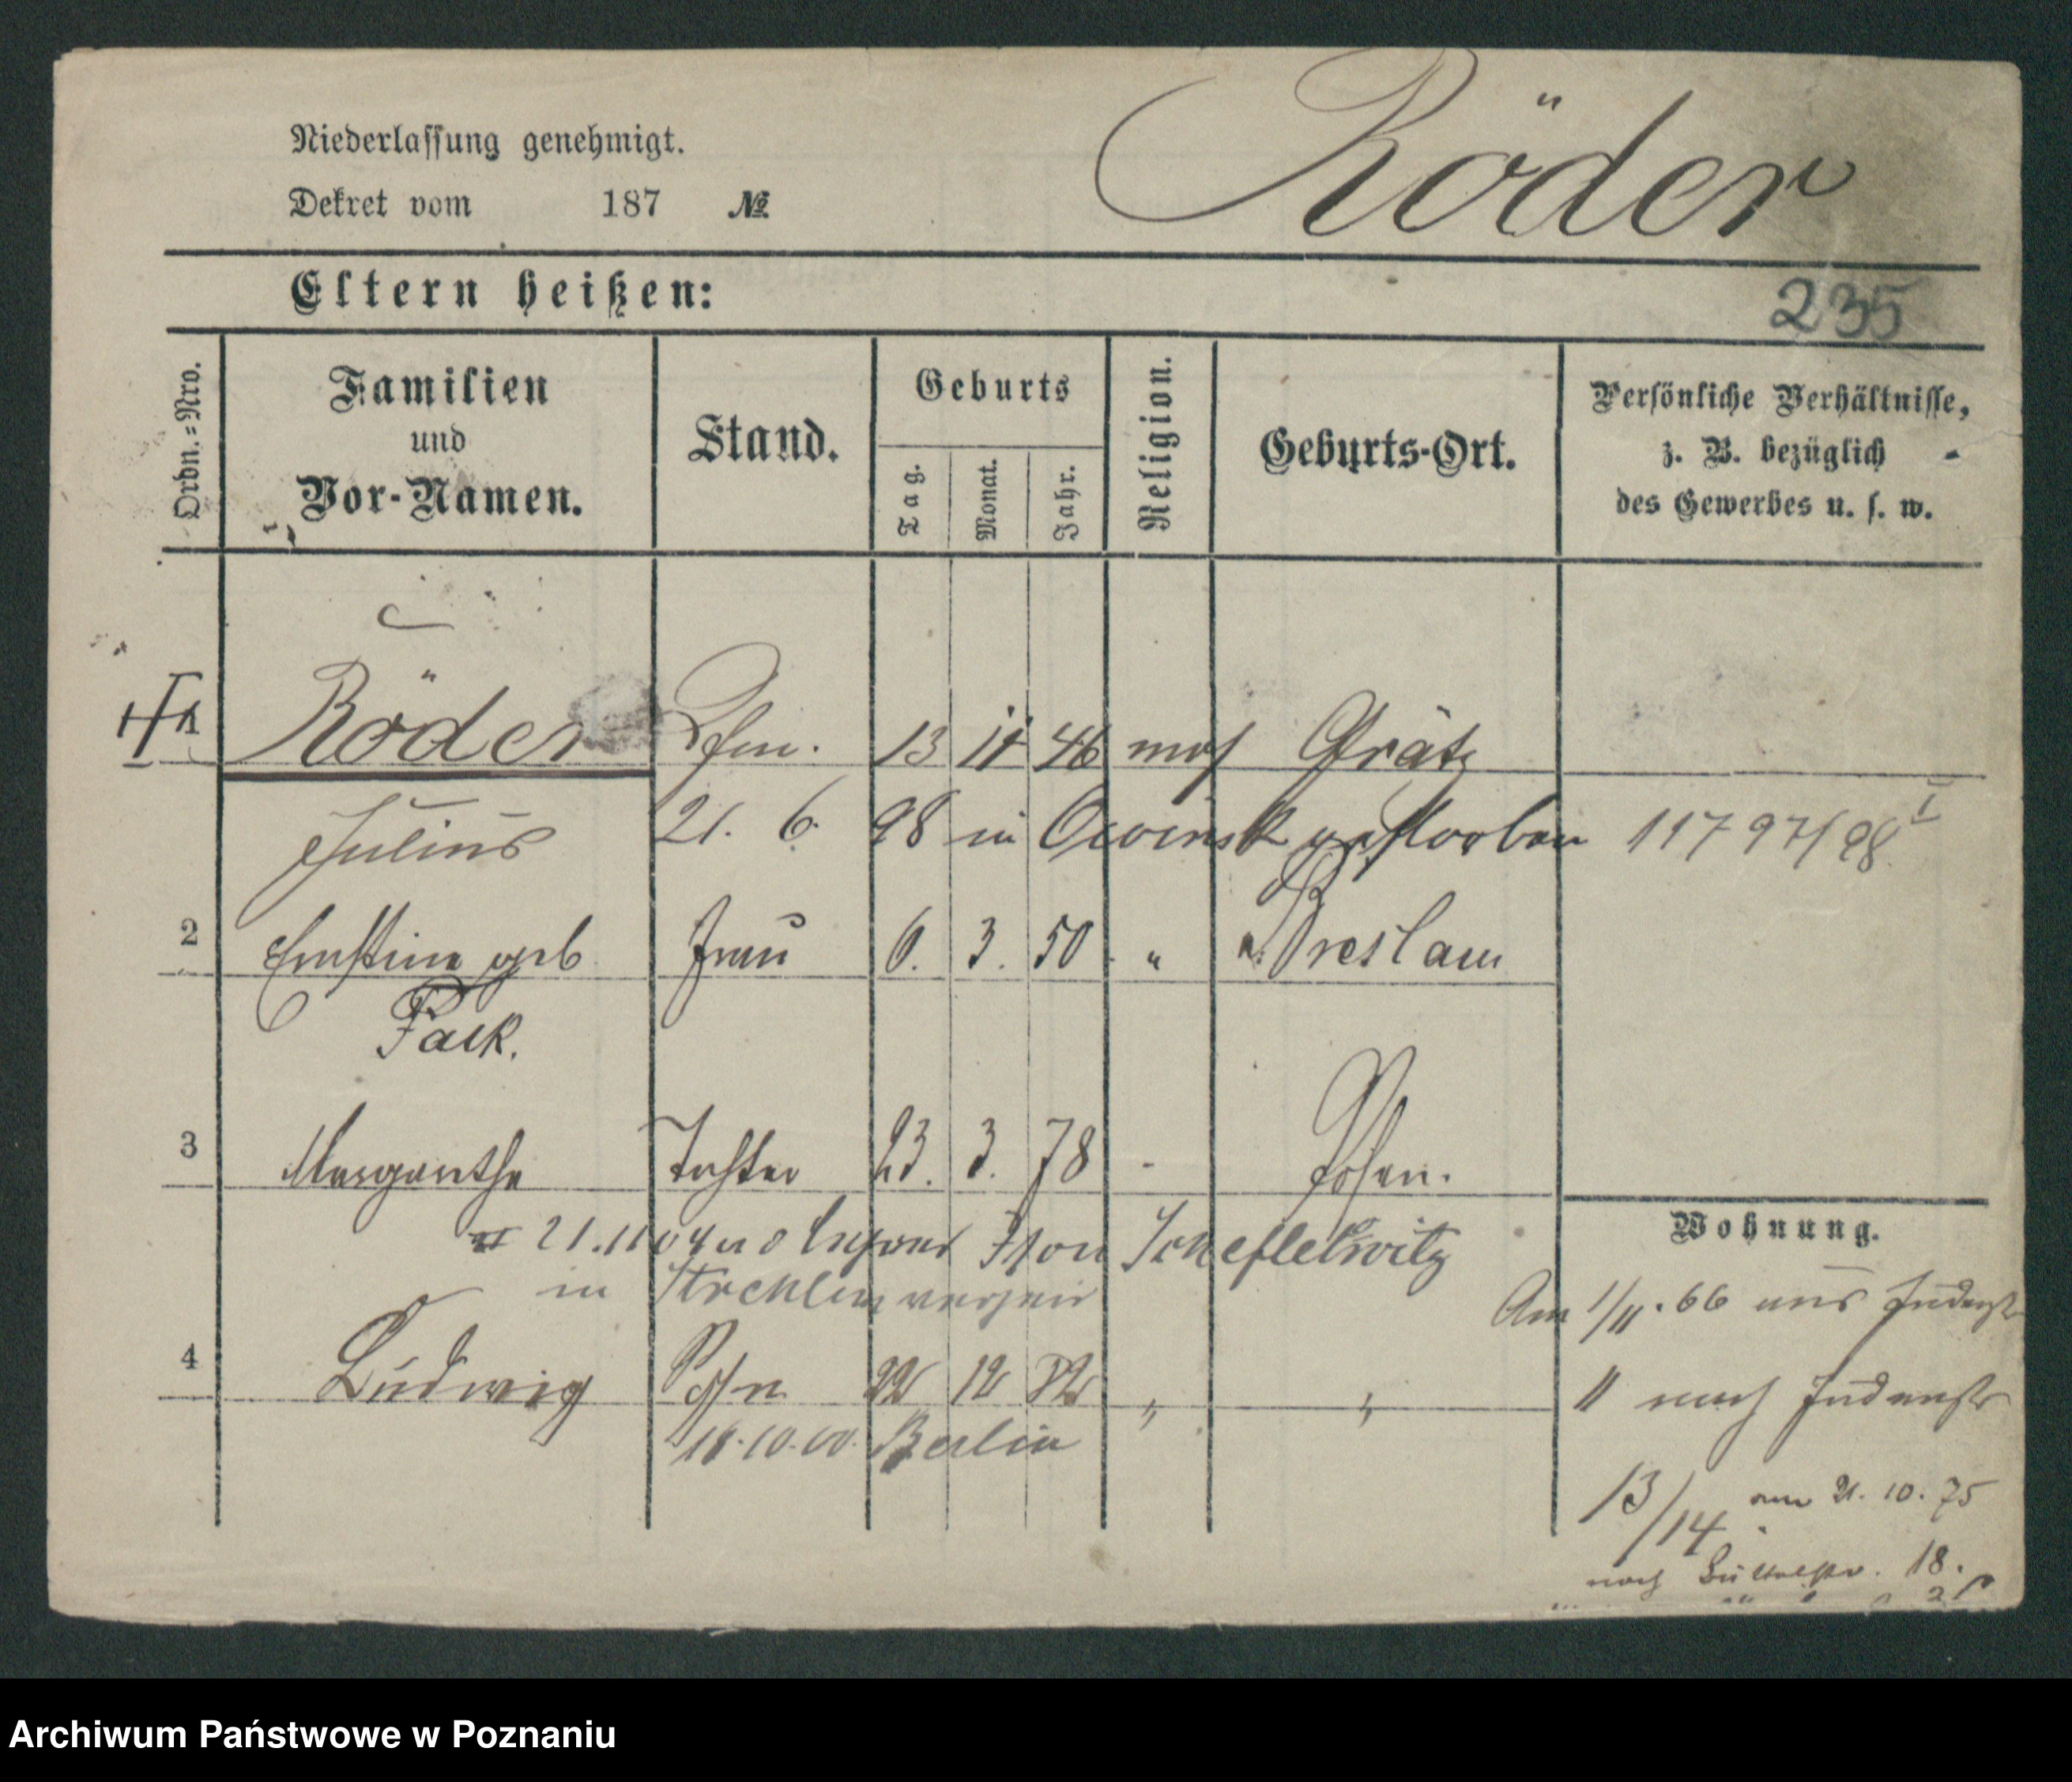 Röder
Niederlassung genehmigt.
Dekret vom 187 №
Eltern heißen:
235
Ordn.=Nro.
Familien
und
Vor-Namen.
Stand.
Geburts
Tag. Monat. Jahr.
Religion.
Geburts-Ort.
Persönliche Verhältnisse,
z. B. bezüglich
des Gewerbes u. s. w.
1 Röder 13 11 46 mos Grätz
Julius 21. 6. 98 in Owinsk verstorben 11797/98 I
2 Ernstine geb Frau 6. 3. 50 " Breslau
Falk.
3 Margarethe Tochter 23. 3. 78 Posen.
21.11 04
in Strehlen
4 Ludwig Sohn 22 12 82 " "
18.10.00. Berlin
Wohnung.
Am 1/11.66 aus Judenstr
11 nach Judenstr
13/14. am 21.10.75
nach Büttelstr. 18.